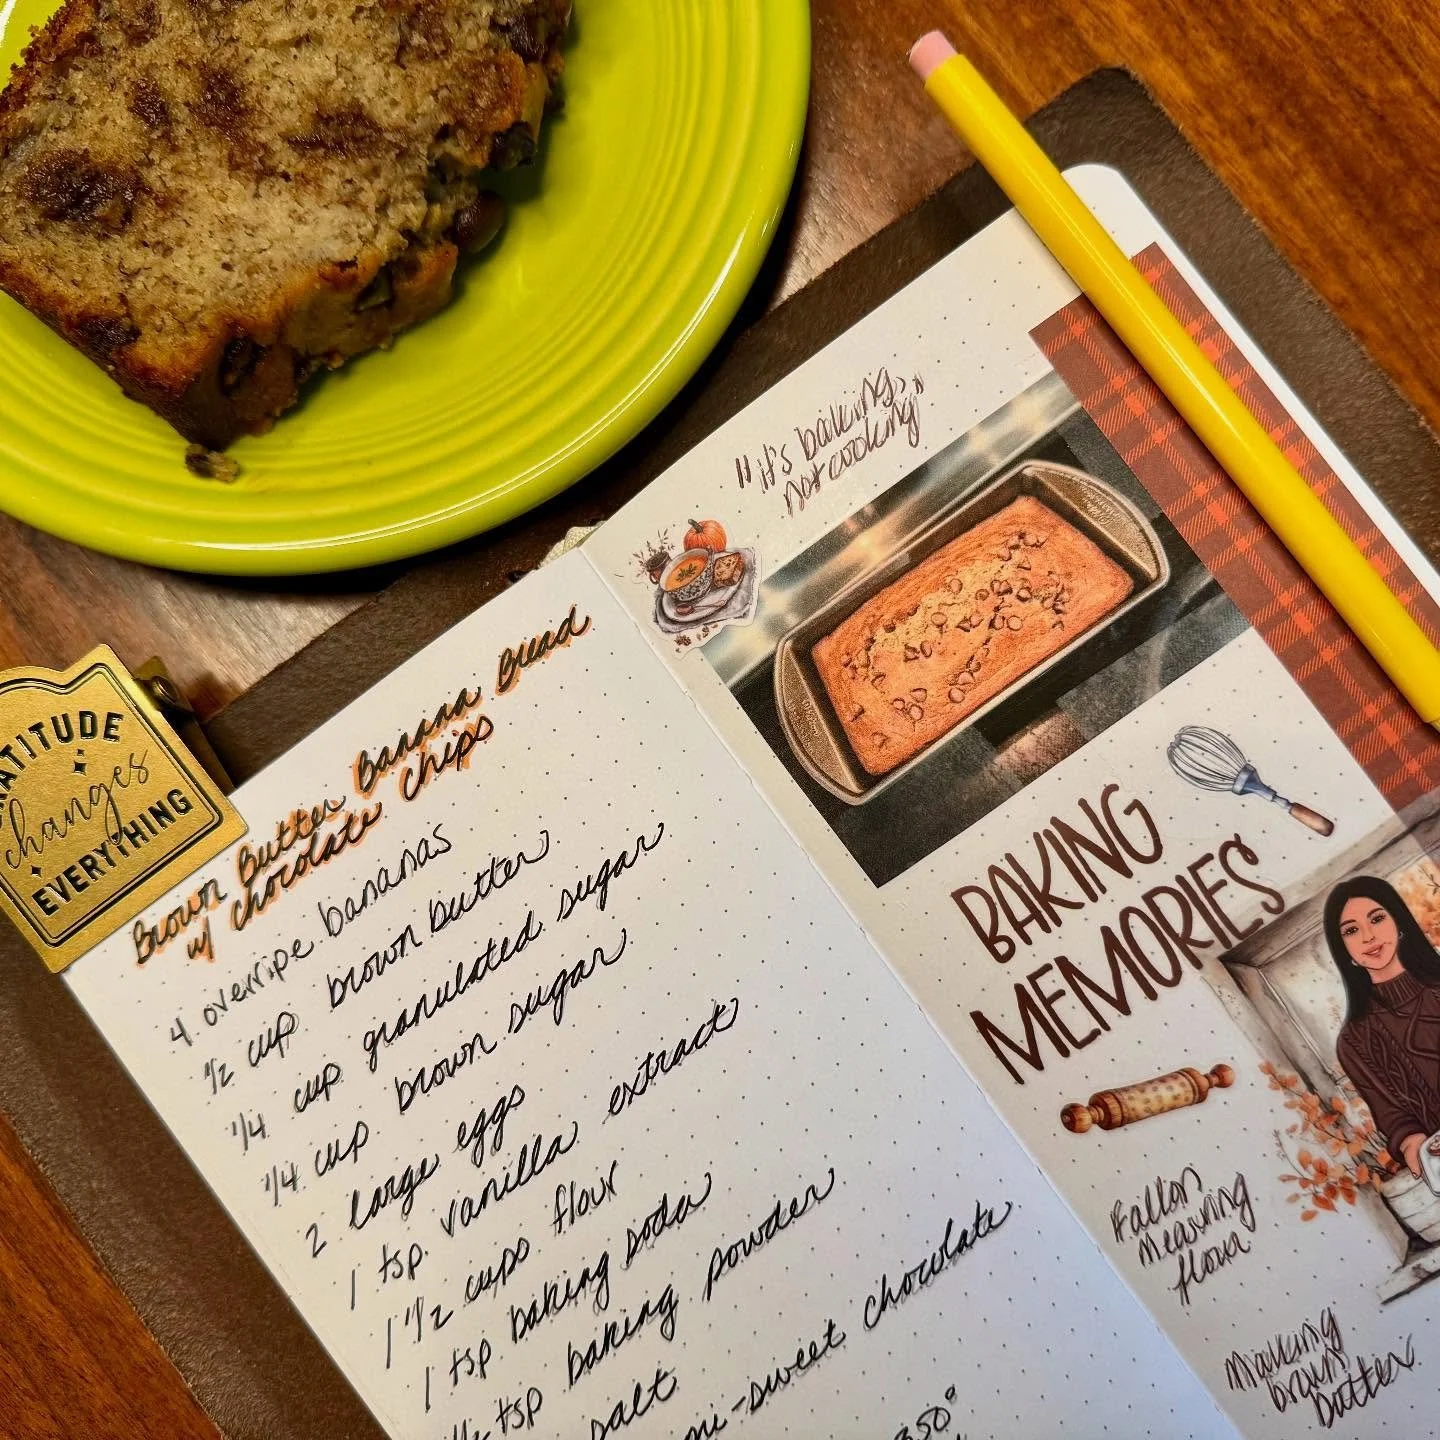 GRATITUDE
changes
EVERYTHING
Brown Butter Banana Bread
w/ chocolate chips
4 overripe bananas
1/2 cup brown butter
1/4 cup granulated sugar
1/4 cup brown sugar
2 large eggs
1 tsp vanilla extract
1 1/2 cups flour
1 tsp baking soda
1/2 tsp baking powder
salt
sweet chocolate
350°
"it's baking,
not cooking"
BAKING
MEMORIES
Fallon
measuring
flour
Making
brown
butter